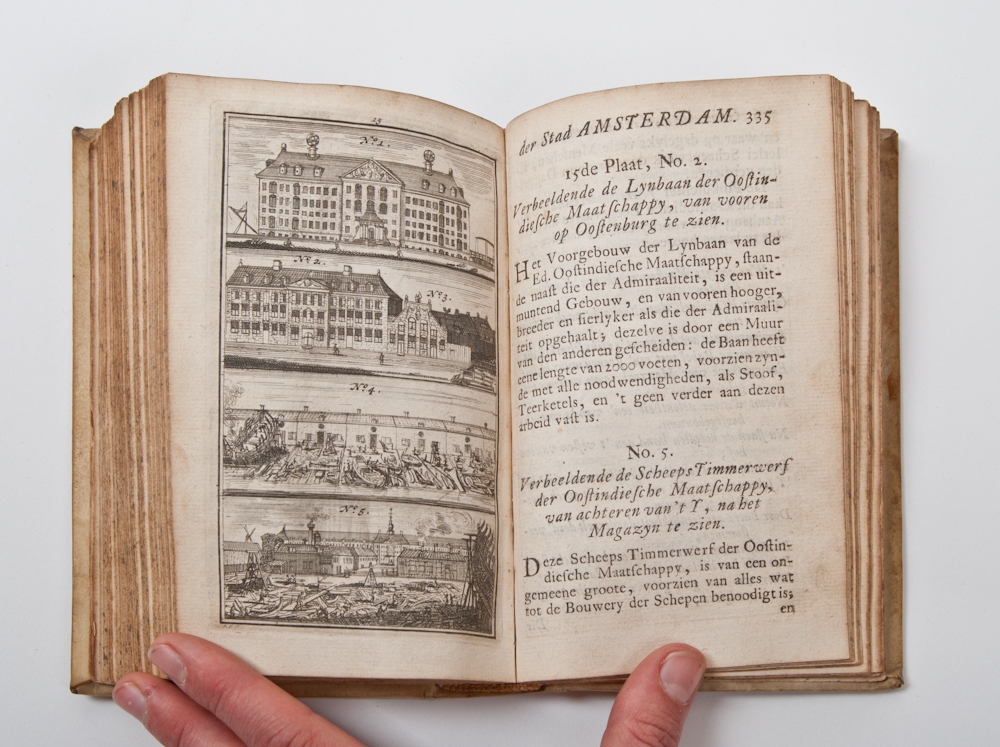 15
No. 1.
No. 2.
No. 3.
No. 4.
No. 5.
der Stad AMSTERDAM. 335
15de Plaat, No. 2.
Verbeeldende de Lynbaan der Ooſtin-
dieſche Maatſchappy, van vooren
op Ooſtenburg te zien.
Het Voorgebouw der Lynbaan van de
Ed. Ooſtindieſche Maatſchappy, ſtaan-
de naaſt die der Admiraaliteit, is een uit-
muntend Gebouw, en van vooren hooger,
breeder en ſierlyker als die der Admiraali-
teit opgehaalt; dezelve is door een Muur
van den anderen geſcheiden: de Baan heeft
eene lengte van 2000 voeten, voorzien zyn-
de met alle noodwendigheden, als Stoof,
Teerketels, en 't geen verder aan dezen
arbeid vaſt is.
No. 5.
Verbeeldende de Scheeps Timmerwerf
der Ooſtindieſche Maatſchappy,
van achteren van 't Y, na het
Magazyn te zien.
Deze Scheeps Timmerwerf der Ooſtin-
dieſche Maatſchappy, is van een on-
gemeene groote, voorzien van alles wat
tot de Bouwery der Schepen benoodigt is;
en